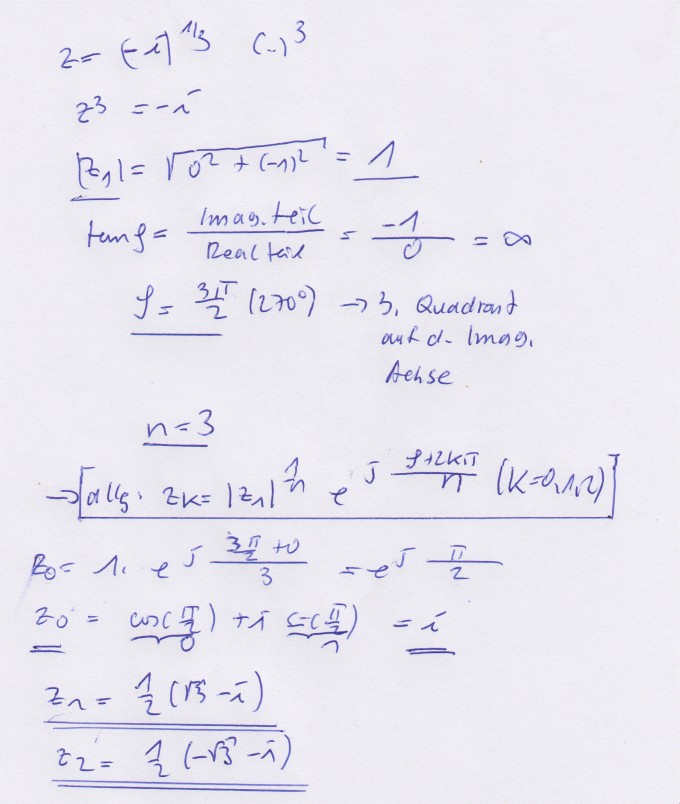 z = (-i)^{1/3} (..)^3
z^3 = -i
|z_1| = √(0^2 + (-1)^2) = 1
tan φ = Imag.teil / Realteil = -1/0 = ∞
φ = 3π/2 (270°) → 3. Quadrant
auf d. Imag.
Achse
n = 3
→ [allg. z_K = |z_1|^{1/n} e^{j (φ+2kπ)/n} (K=0,1,2)]
z_0 = 1. e^{j (3π/2 + 0)/3} = e^{j π/2}
z_0 = cos(π/2) + i s(π/2) = i
0 1
z_1 = 1/2 (√3 - i)
z_2 = 1/2 (-√3 - i)